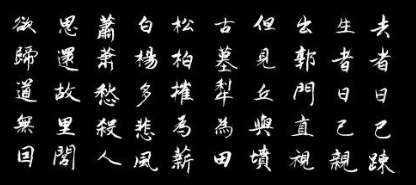 去者日已踈
生者日已親
出郭門直視
但見丘與墳
古墓犁為田
松柏摧為薪
白楊多悲風
蕭蕭愁殺人
思還故里閭
欲歸道無因